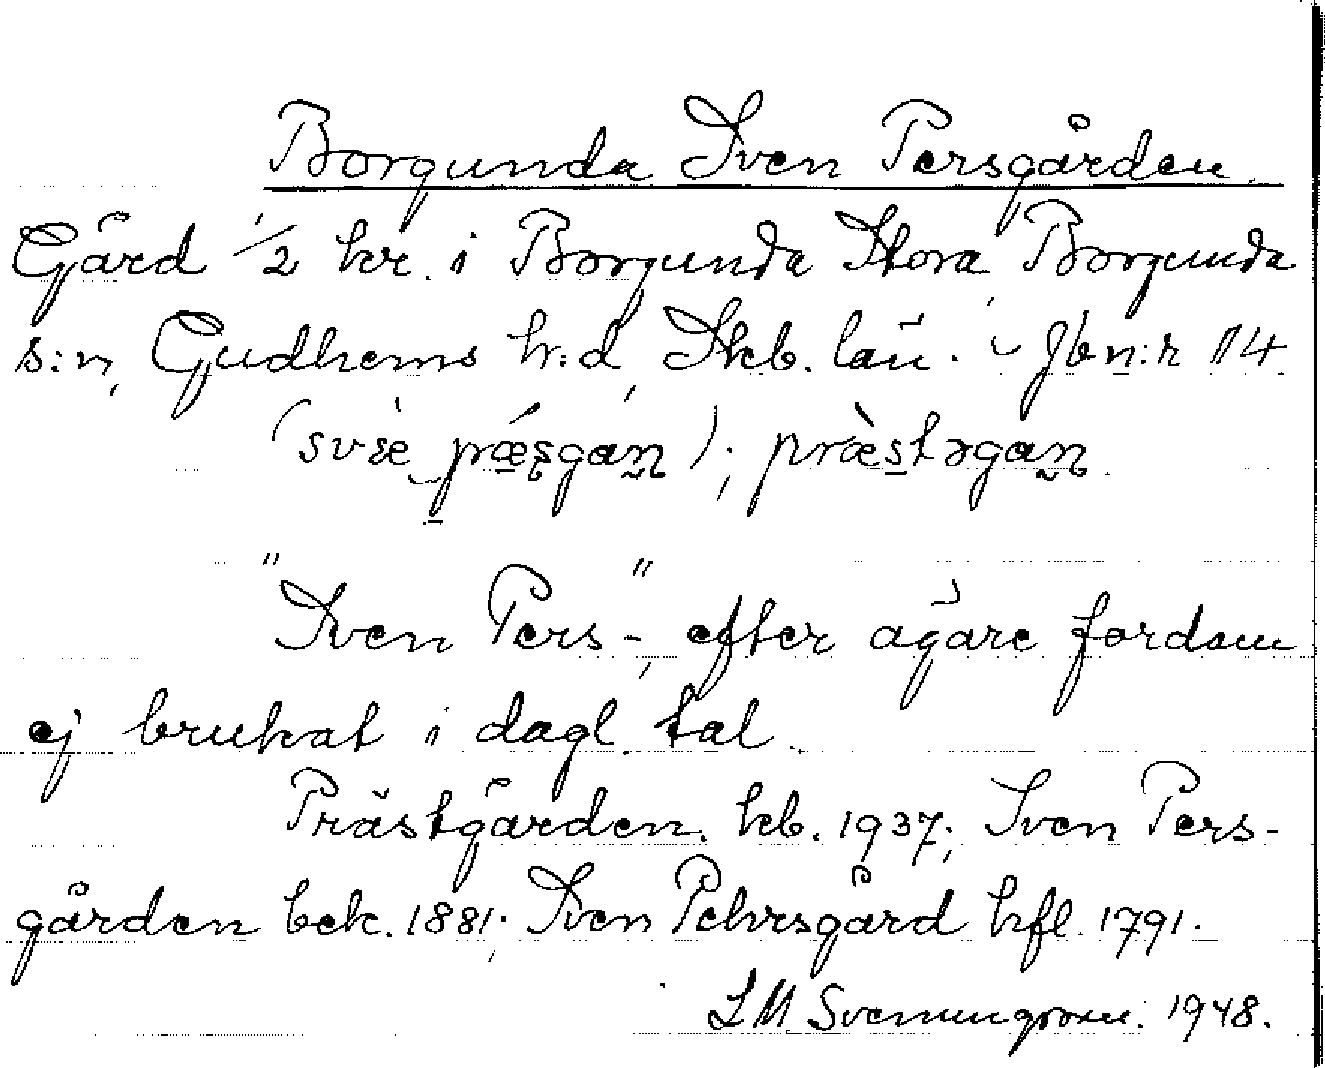 Borgunda Sven Persgården
Gård 1/2 hr. i Borgunda Stora Borgunda
s:n, Gudhems h:d, Skb. län. Jbn:r 14
præstəgan
"Sven Pers-", efter ägare fordom
ej brukat i dagl. tal.
Prästgården. kb. 1937; Sven Pers-
gården bek. 1881; Sven Pehrsgård hfl. 1791.
LM Svenungsson. 1948.